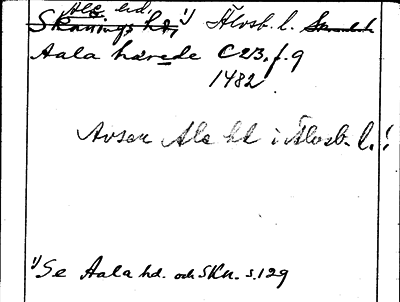 Ale hd.
Skånings hd, 1) Älvsb. l.
Aala härede C 23, f. 9
1482
Avser Ale hd i Älvsb. l.!
1) Se Aala hd. och SkH. s. 129